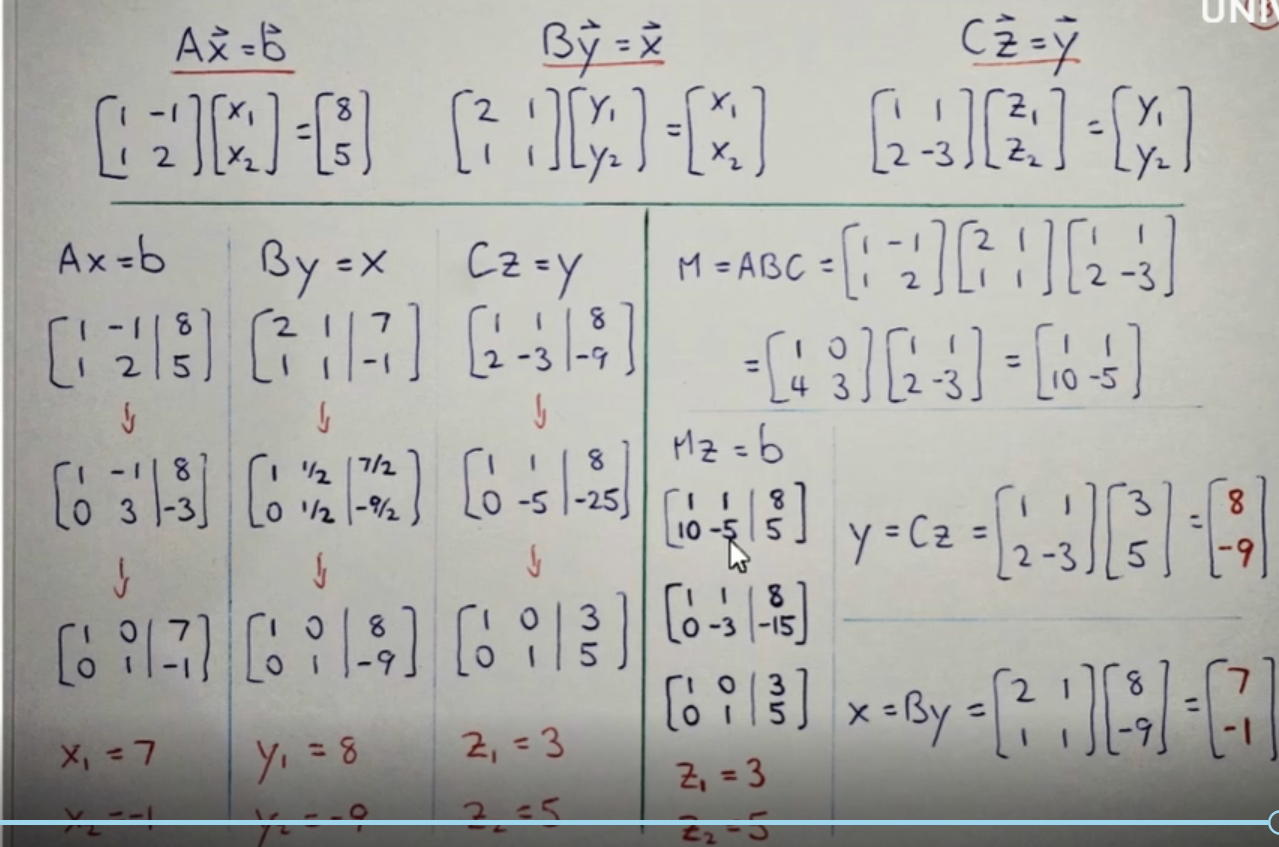 UNIV
Ax⃗ = b⃗
[1 -1; 1 2] [x₁; x₂] = [8; 5]
By⃗ = x⃗
[2 1; 1 1] [y₁; y₂] = [x₁; x₂]
Cz⃗ = y⃗
[1 1; 2 -3] [z₁; z₂] = [y₁; y₂]
Ax = b
[1 -1 | 8; 1 2 | 5]
↓
[1 -1 | 8; 0 3 | -3]
↓
[1 0 | 7; 0 1 | -1]
x₁ = 7
x₂ = -1
By = x
[2 1 | 7; 1 1 | -1]
↓
[1 1/2 | 7/2; 0 1/2 | -9/2]
↓
[1 0 | 8; 0 1 | -9]
y₁ = 8
y₂ = -9
Cz = y
[1 1 | 8; 2 -3 | -9]
↓
[1 1 | 8; 0 -5 | -25]
↓
[1 0 | 3; 0 1 | 5]
z₁ = 3
z₂ = 5
M = ABC = [1 -1; 1 2] [2 1; 1 1] [1 1; 2 -3]
= [1 0; 4 3] [1 1; 2 -3] = [1 1; 10 -5]
Mz = b
[1 1 | 8; 10 -5 | 5]
[1 1 | 8; 0 -3 | -15]
[1 0 | 3; 0 1 | 5]
z₁ = 3
z₂ = 5
y = Cz = [1 1; 2 -3] [3; 5] = [8; -9]
x = By = [2 1; 1 1] [8; -9] = [7; -1]